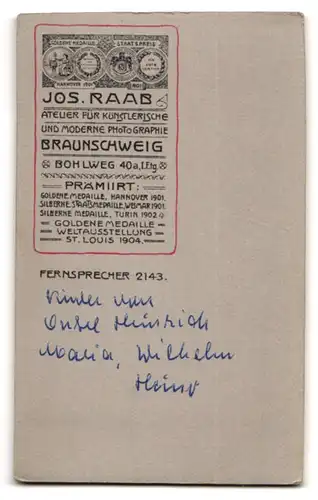 GOLDENE MEDAILLE STAATSPREIS
HANNOVER 1901
JOS. RAAB
ATELIER FÜR KÜNSTLERISCHE
UND MODERNE PHOTOGRAPHIE
BRAUNSCHWEIG
BOHLWEG 40a, I.Etg.
PRÄMIIRT:
GOLDENE MEDAILLE, HANNOVER 1901.
SILBERNE STAATSMEDAILLE, WEIMAR 1901.
SILBERNE MEDAILLE, TURIN 1902.
GOLDENE MEDAILLE
WELTAUSSTELLUNG
ST. LOUIS 1904.
FERNSPRECHER 2143.
Kinder von
Onkel Heinrich
Maria, Wilhelm
Heinz